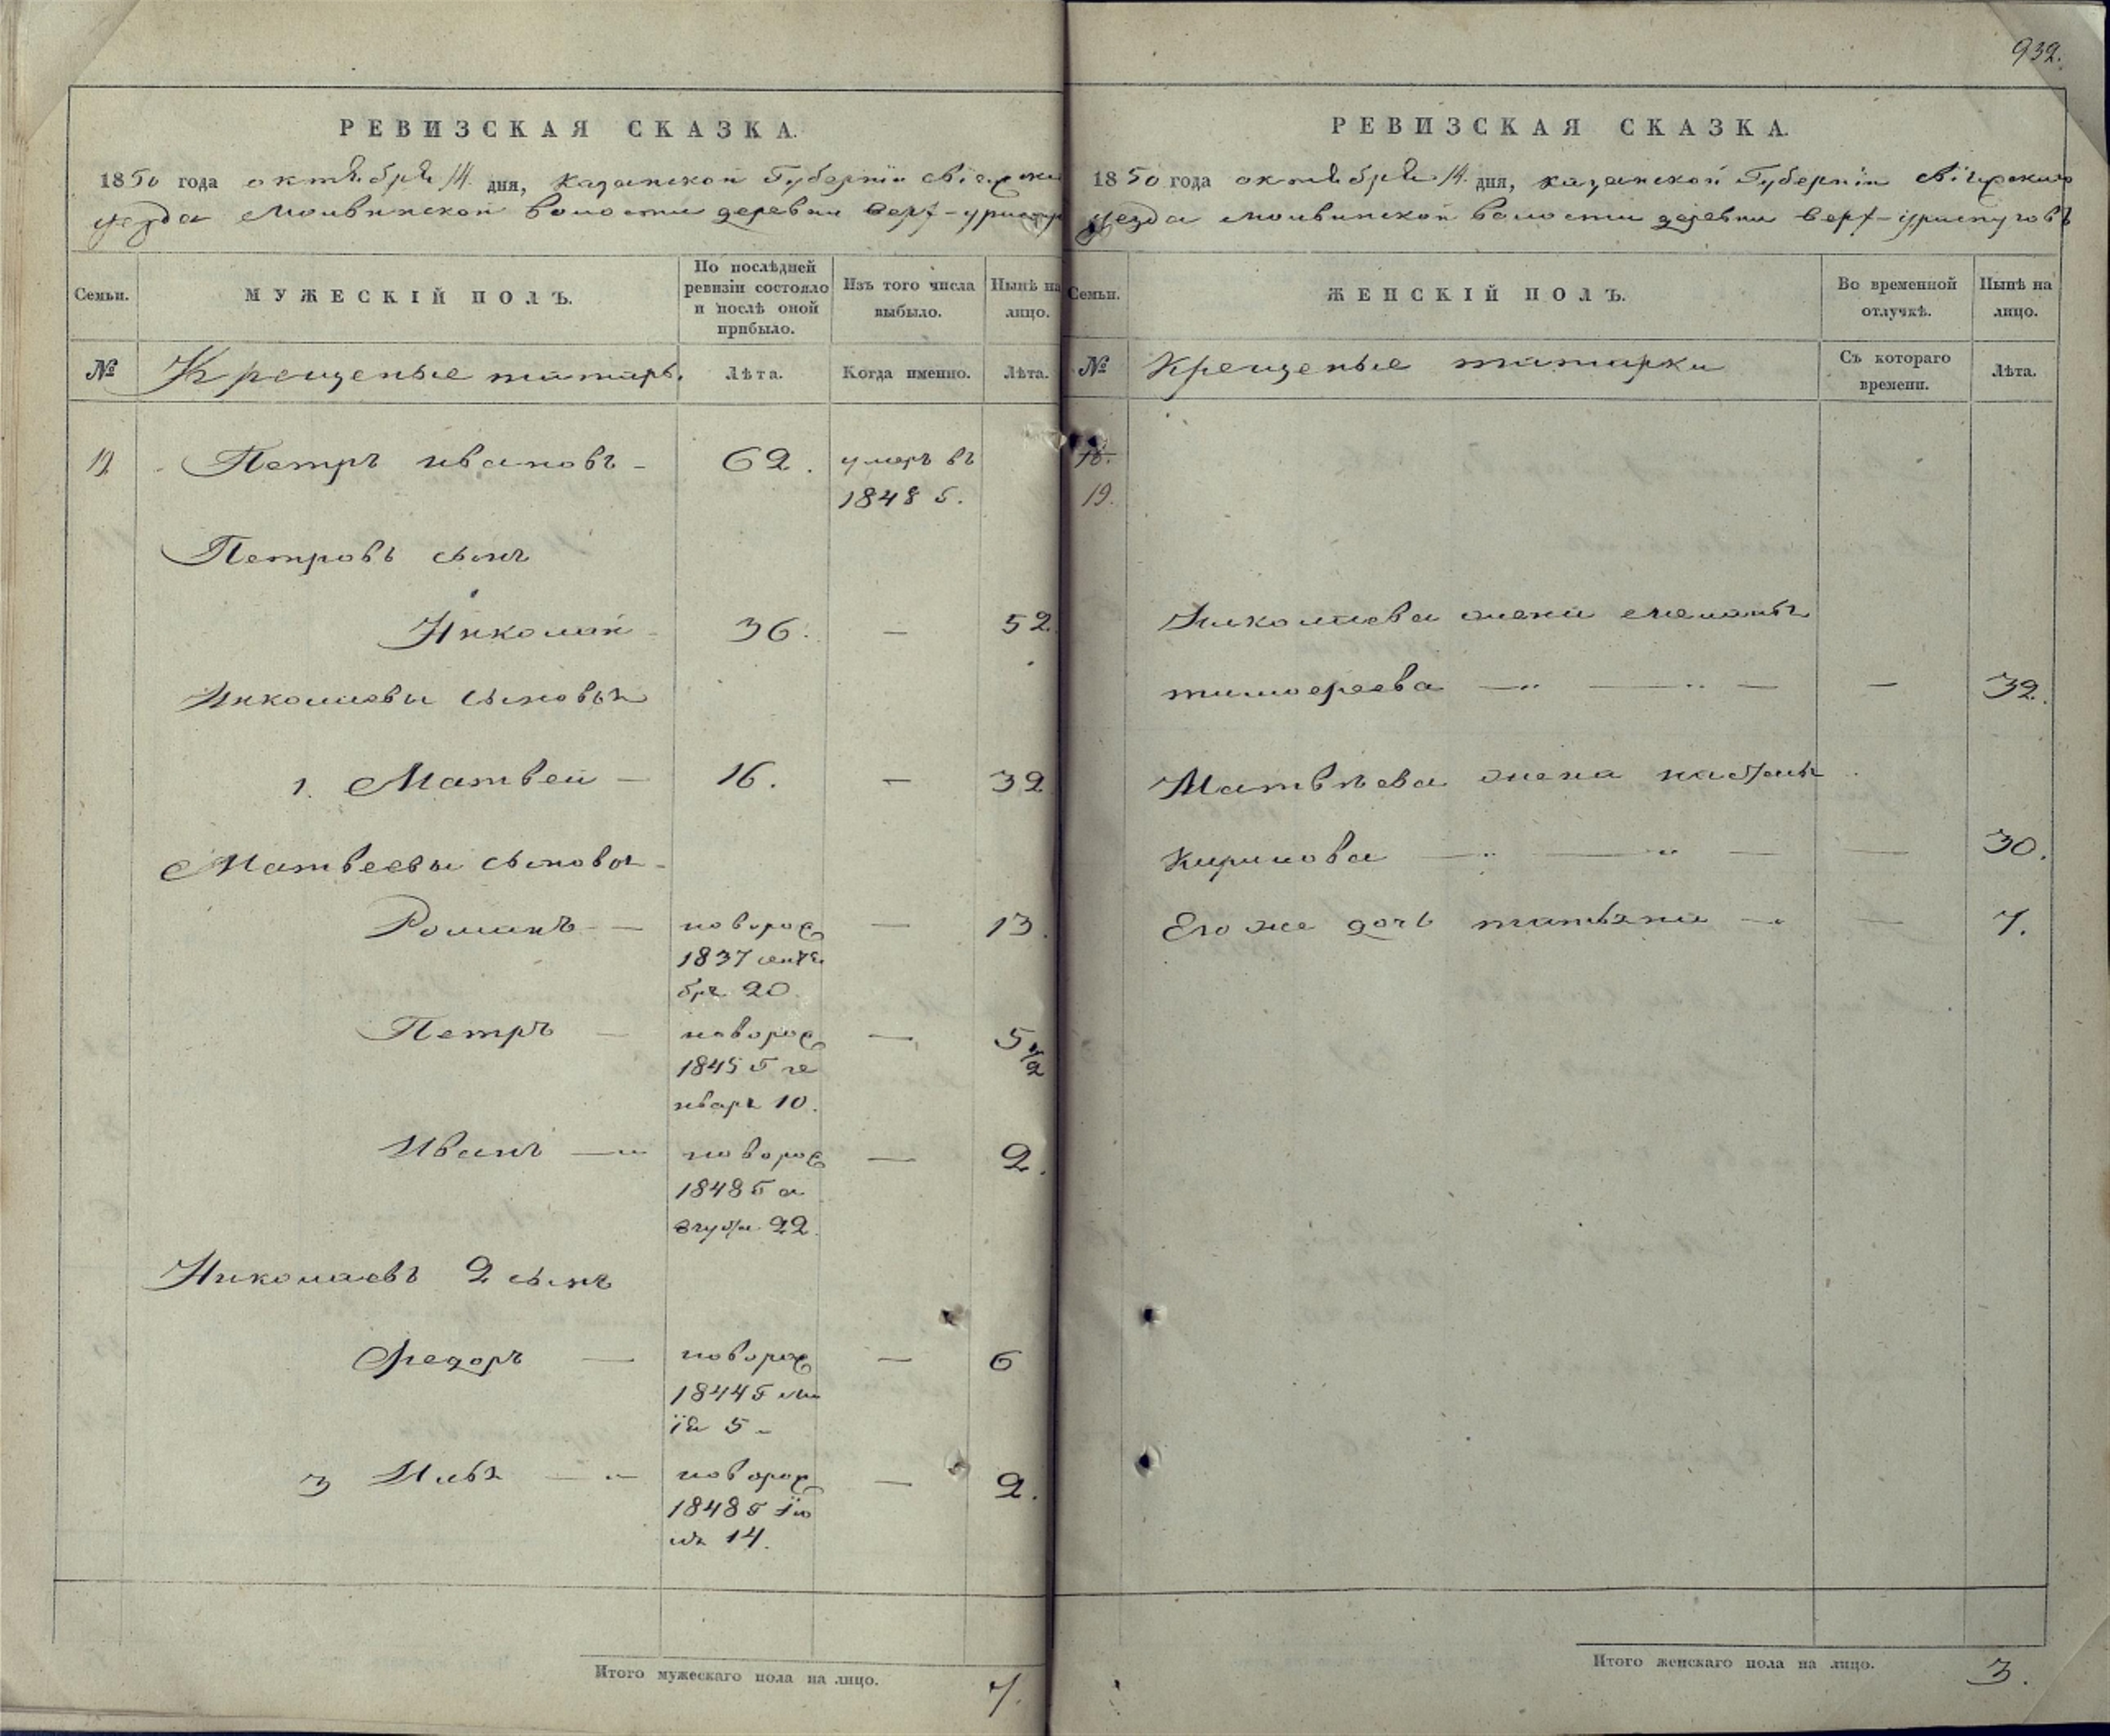 932.
РЕВИЗСКАЯ СКАЗКА.
1850 года октября 14 дня, казанской Губернiи свiяжска
уезда Молвинской волости деревни верх-
Семьи.
МУЖЕСКІЙ ПОЛЪ.
По послѣдней ревизіи состояло и послѣ оной прибыло.
Изъ того числа выбыло.
Нынѣ на лицо.
№
Крещеные татары.
Лѣта.
Когда именно.
Лѣта.
19 Петръ ивановъ - 62. умеръ въ
1848 г.
Петровъ сынъ
Николай 36. — 52
Николаевы сыновья
1. Матвей — 16. — 32
Матвеевы сыновья
Романъ — новорож — 13.
1837 сентя
бря 20
Петръ — новорож — 5 1/2
1845 г ге
нваря 10.
Иванъ — новорож — 2.
1848 г а
вгуста 22.
Николаевъ 2 сынъ
Федоръ — новорож — 6
1844 г ма
iя 5 -
3 Илья — новорож — 2.
1848 г Iю
ля 14.
Итого мужескаго пола на лицо. 7.
РЕВИЗСКАЯ СКАЗКА.
1850 года октября 14 дня, казанской Губернiи свiяжскаго
уезда молвинской волости деревни верх-
Семьи.
ЖЕНСКІЙ ПОЛЪ.
Во временной отлучкѣ.
Нынѣ на лицо.
№
Крещеные татарки
Съ котораго времени.
Лѣта.
18.
19.
Николаева жена
тимофеева — — — — 32.
Матвѣева жена настасья
Кирилова — — — — 30.
Его же дочь татьяна — — 7.
Итого женскаго пола на лицо. 3.